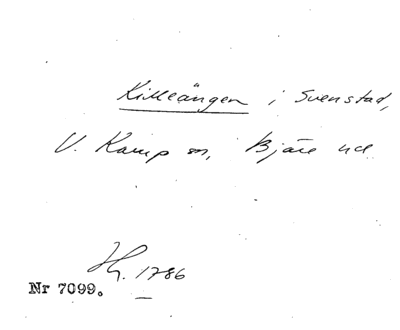 Killeängen i Svenstad,
V. Karup sn, Bjäre hd
Hg. 1786
Nr 7099.